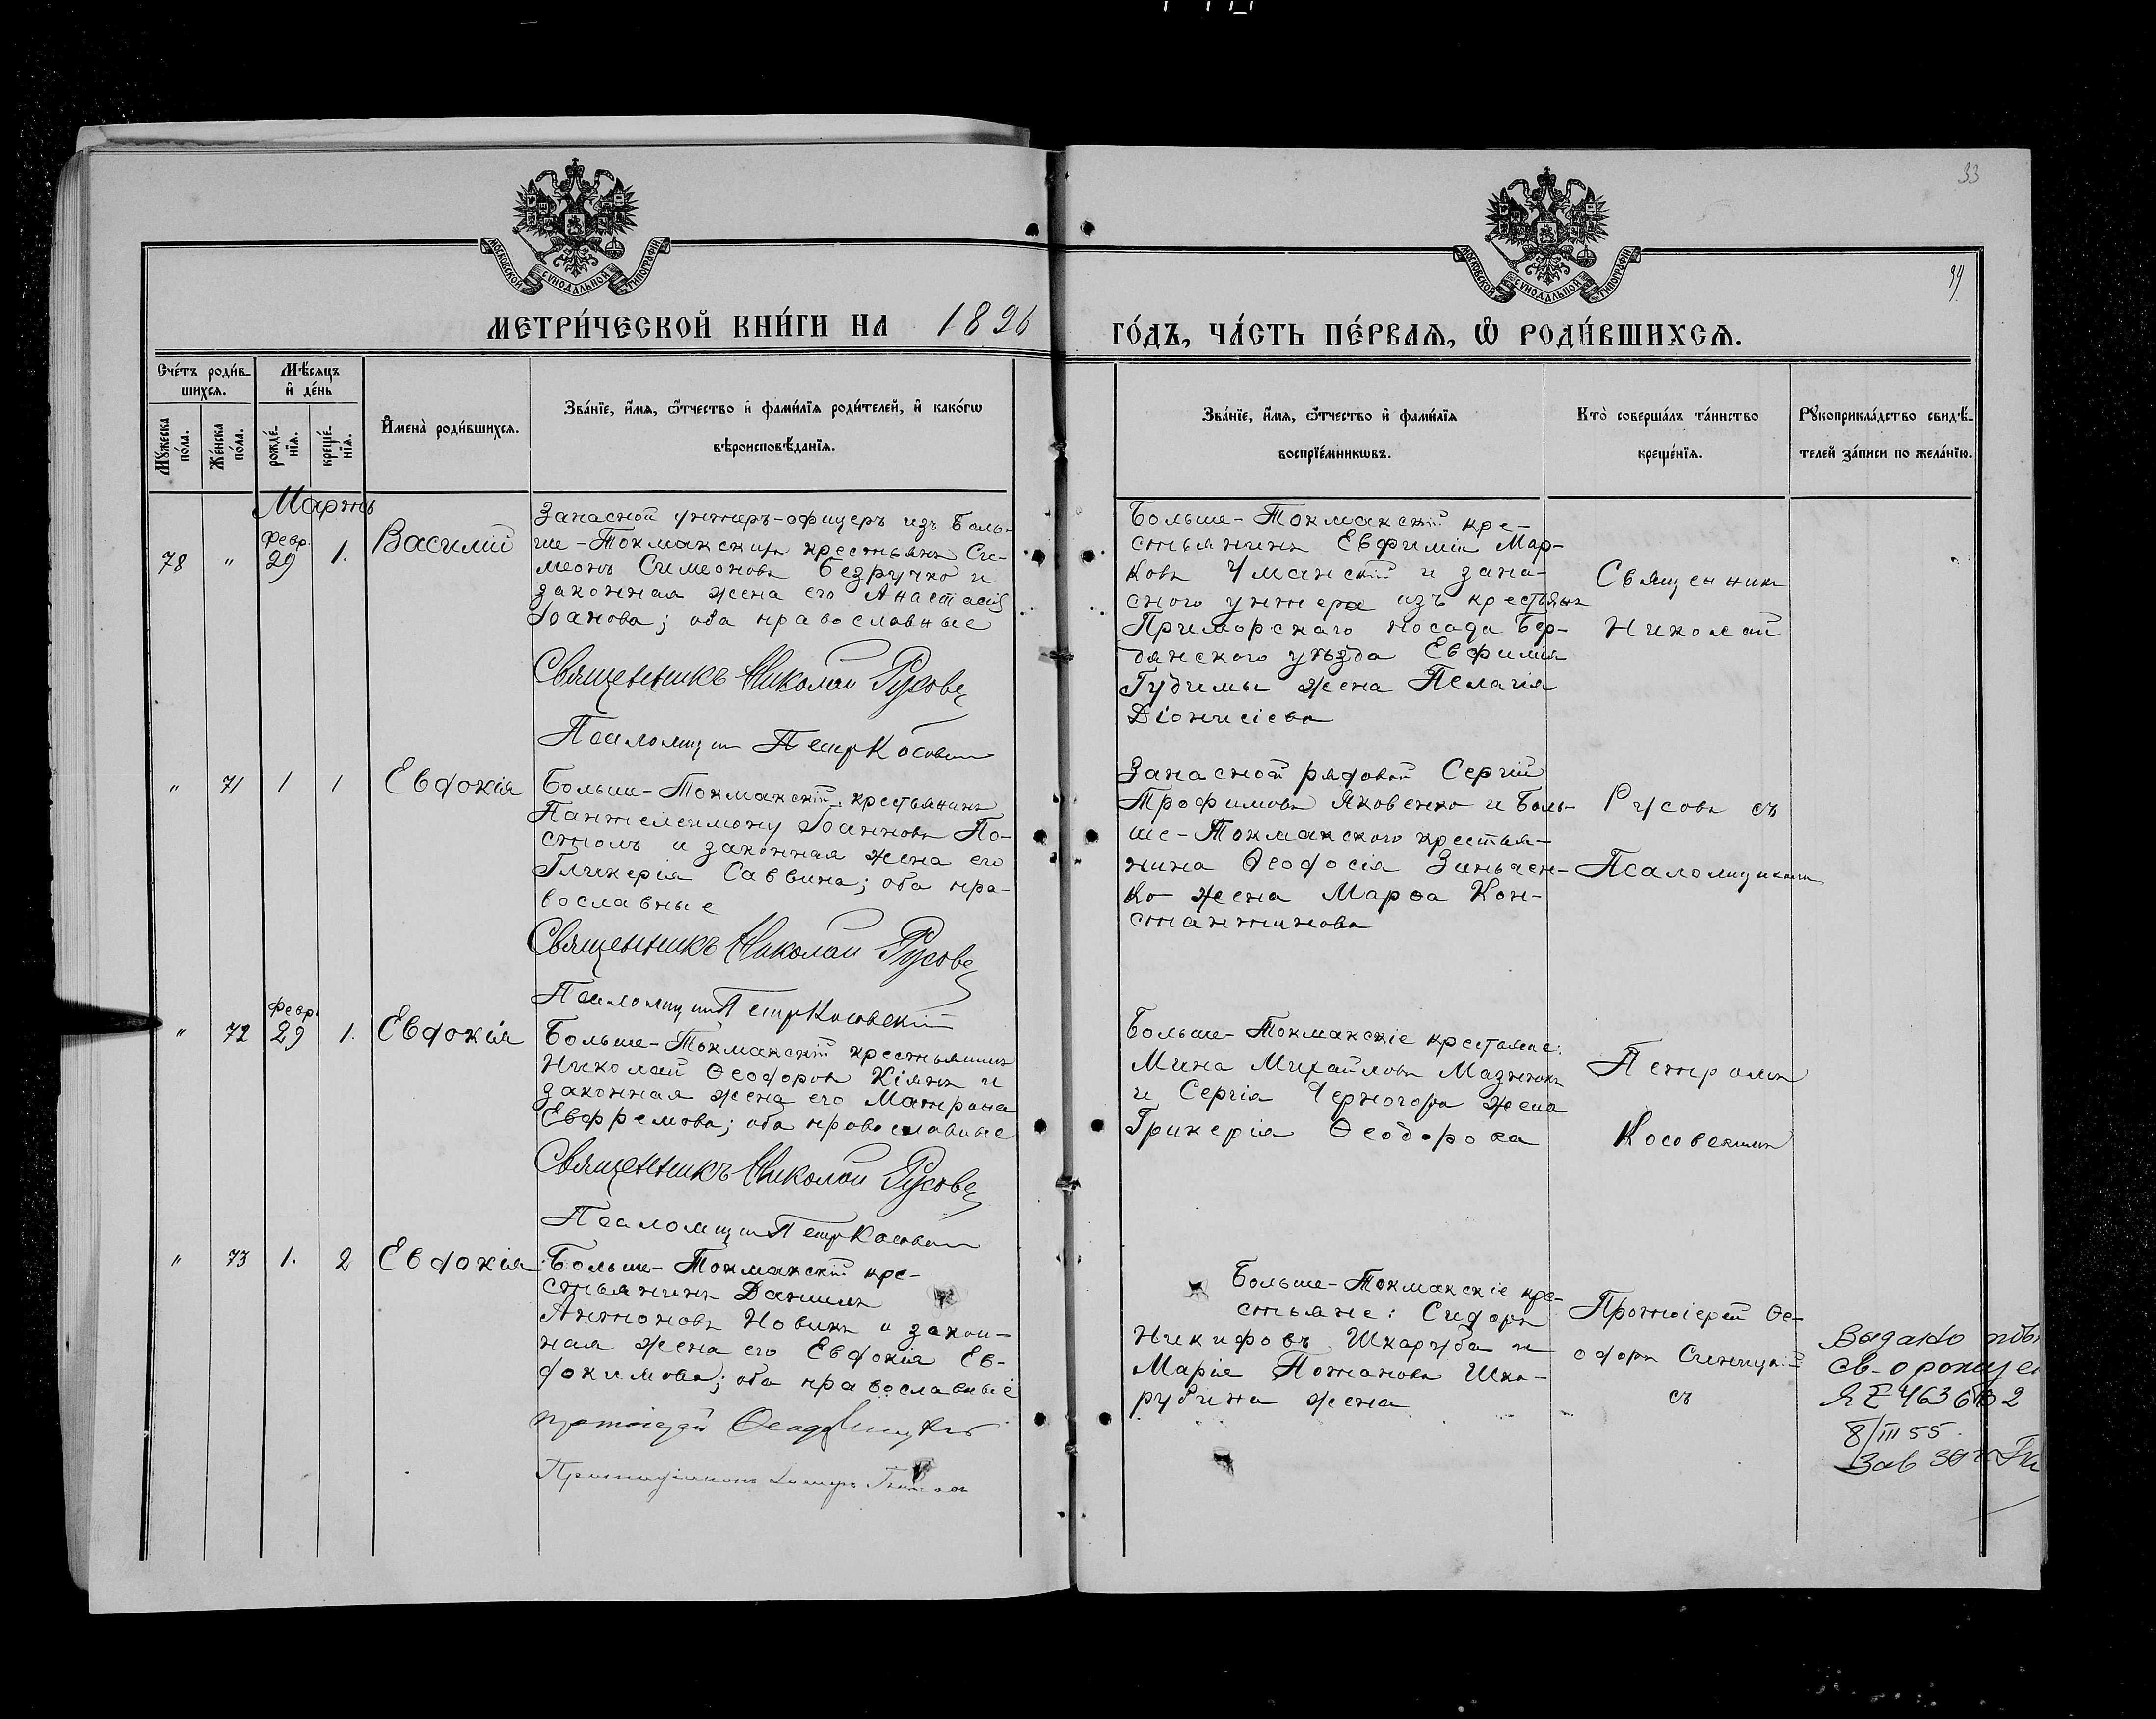 33
МОСКОВСКОЙ СѴНОДАЛЬНОЙ ТИПОГРАФІИ
МОСКОВСКОЙ СѴНОДАЛЬНОЙ ТИПОГРАФІИ
МЕТРИ́ЧЕСКОЙ КНИ́ГИ НА 1896
ГО́ДЪ, ЧА́СТЬ ПЕ́РВАѦ, Ѡ҆ РОДИ́ВШИХСѦ.
Счéтъ роди́в-
шихсѧ.
Мѣ́сѧцъ
и҆ дéнь
Мꙋ́жеска
пóла.
Жéнска
пóла.
рождé-
нїѧ.
крещé-
нїѧ.
И҆менà роди́вшихсѧ.
Звáнїе, и҆́мѧ, ѻ҆́тчество и҆ фами́лїѧ роди́телей, и҆ какóгѡ
вѣроисповѣ́данїѧ.
Звáнїе, и҆́мѧ, ѻ҆́тчество и҆ фами́лїѧ
воспрїéмникѡвъ.
Ктò совершáлъ тáинство
крещéнїѧ.
Рꙋкоприклáдство свидѣ́-
телей зáписи по желáнїю.
Мартъ
78 " Февр. 29 1. Василій
Запасной унтеръ-офицеръ изъ Боль-
ше-Токмакскихъ крестьянъ Си-
меонъ Симеоновъ Безручко и
законная жена его Анастасія
Іоанова; оба православные
Священникъ Николай Русовъ
Псаломщикъ Петръ Косовскій
Больше-Токмакскій кре-
стьянинъ Евфимій Мар-
ковъ Уманскій и запа-
сного унтера изъ крестьянъ
Приморскаго посада Бер-
дянского уѣзда Евфимія
Гудимы жена Пелагія
Діонисіева
Священникъ
Николай
" 71 1 1 Евдокія
Больше-Токмакскій крестьянинъ
Пантелеимонъ Іоанновъ По-
столъ и законная жена его
Гликерія Саввина; оба пра-
вославные
Священникъ Николай Русовъ
Псаломщикъ Петръ Косовскій
Запасной рядовой Сергій
Трофимовъ Яковенко и Боль-
ше-Токмакского крестья-
нина Ѳеодосія Зиньчен-
ко жена Марѳа Кон-
стантинова
Русовъ съ
Псаломщикомъ
" 72 Февр. 29 1. Евдокія
Больше-Токмакскій крестьянинъ
Николай Ѳеодоровъ Кіянъ и
законная жена его Матрона
Евфремова; оба православные
Священникъ Николай Русовъ
Псаломщикъ Петръ Косовскій
Больше-Токмакскіе крестьяне:
Мина Михайловъ
и Сергія Черногора жена
Гликерія Ѳеодорова
Петромъ
Косовскимъ
" 73 1. 2 Евдокія
Больше-Токмакскій кре-
стьянинъ Даниилъ
Антоновъ Новикъ и закон-
ная жена его Евдокія Ев-
докимова; оба православные
протоіерей
Больше-Токмакскіе кре-
стьяне: Сидоръ
Никифовъ Шкаруба и
Марія Потапова Шка-
рубина жена
Протоіерей Ѳе-
одоръ Синицкій
съ
Выдано
св. о рожден
8/III 55.
Зав